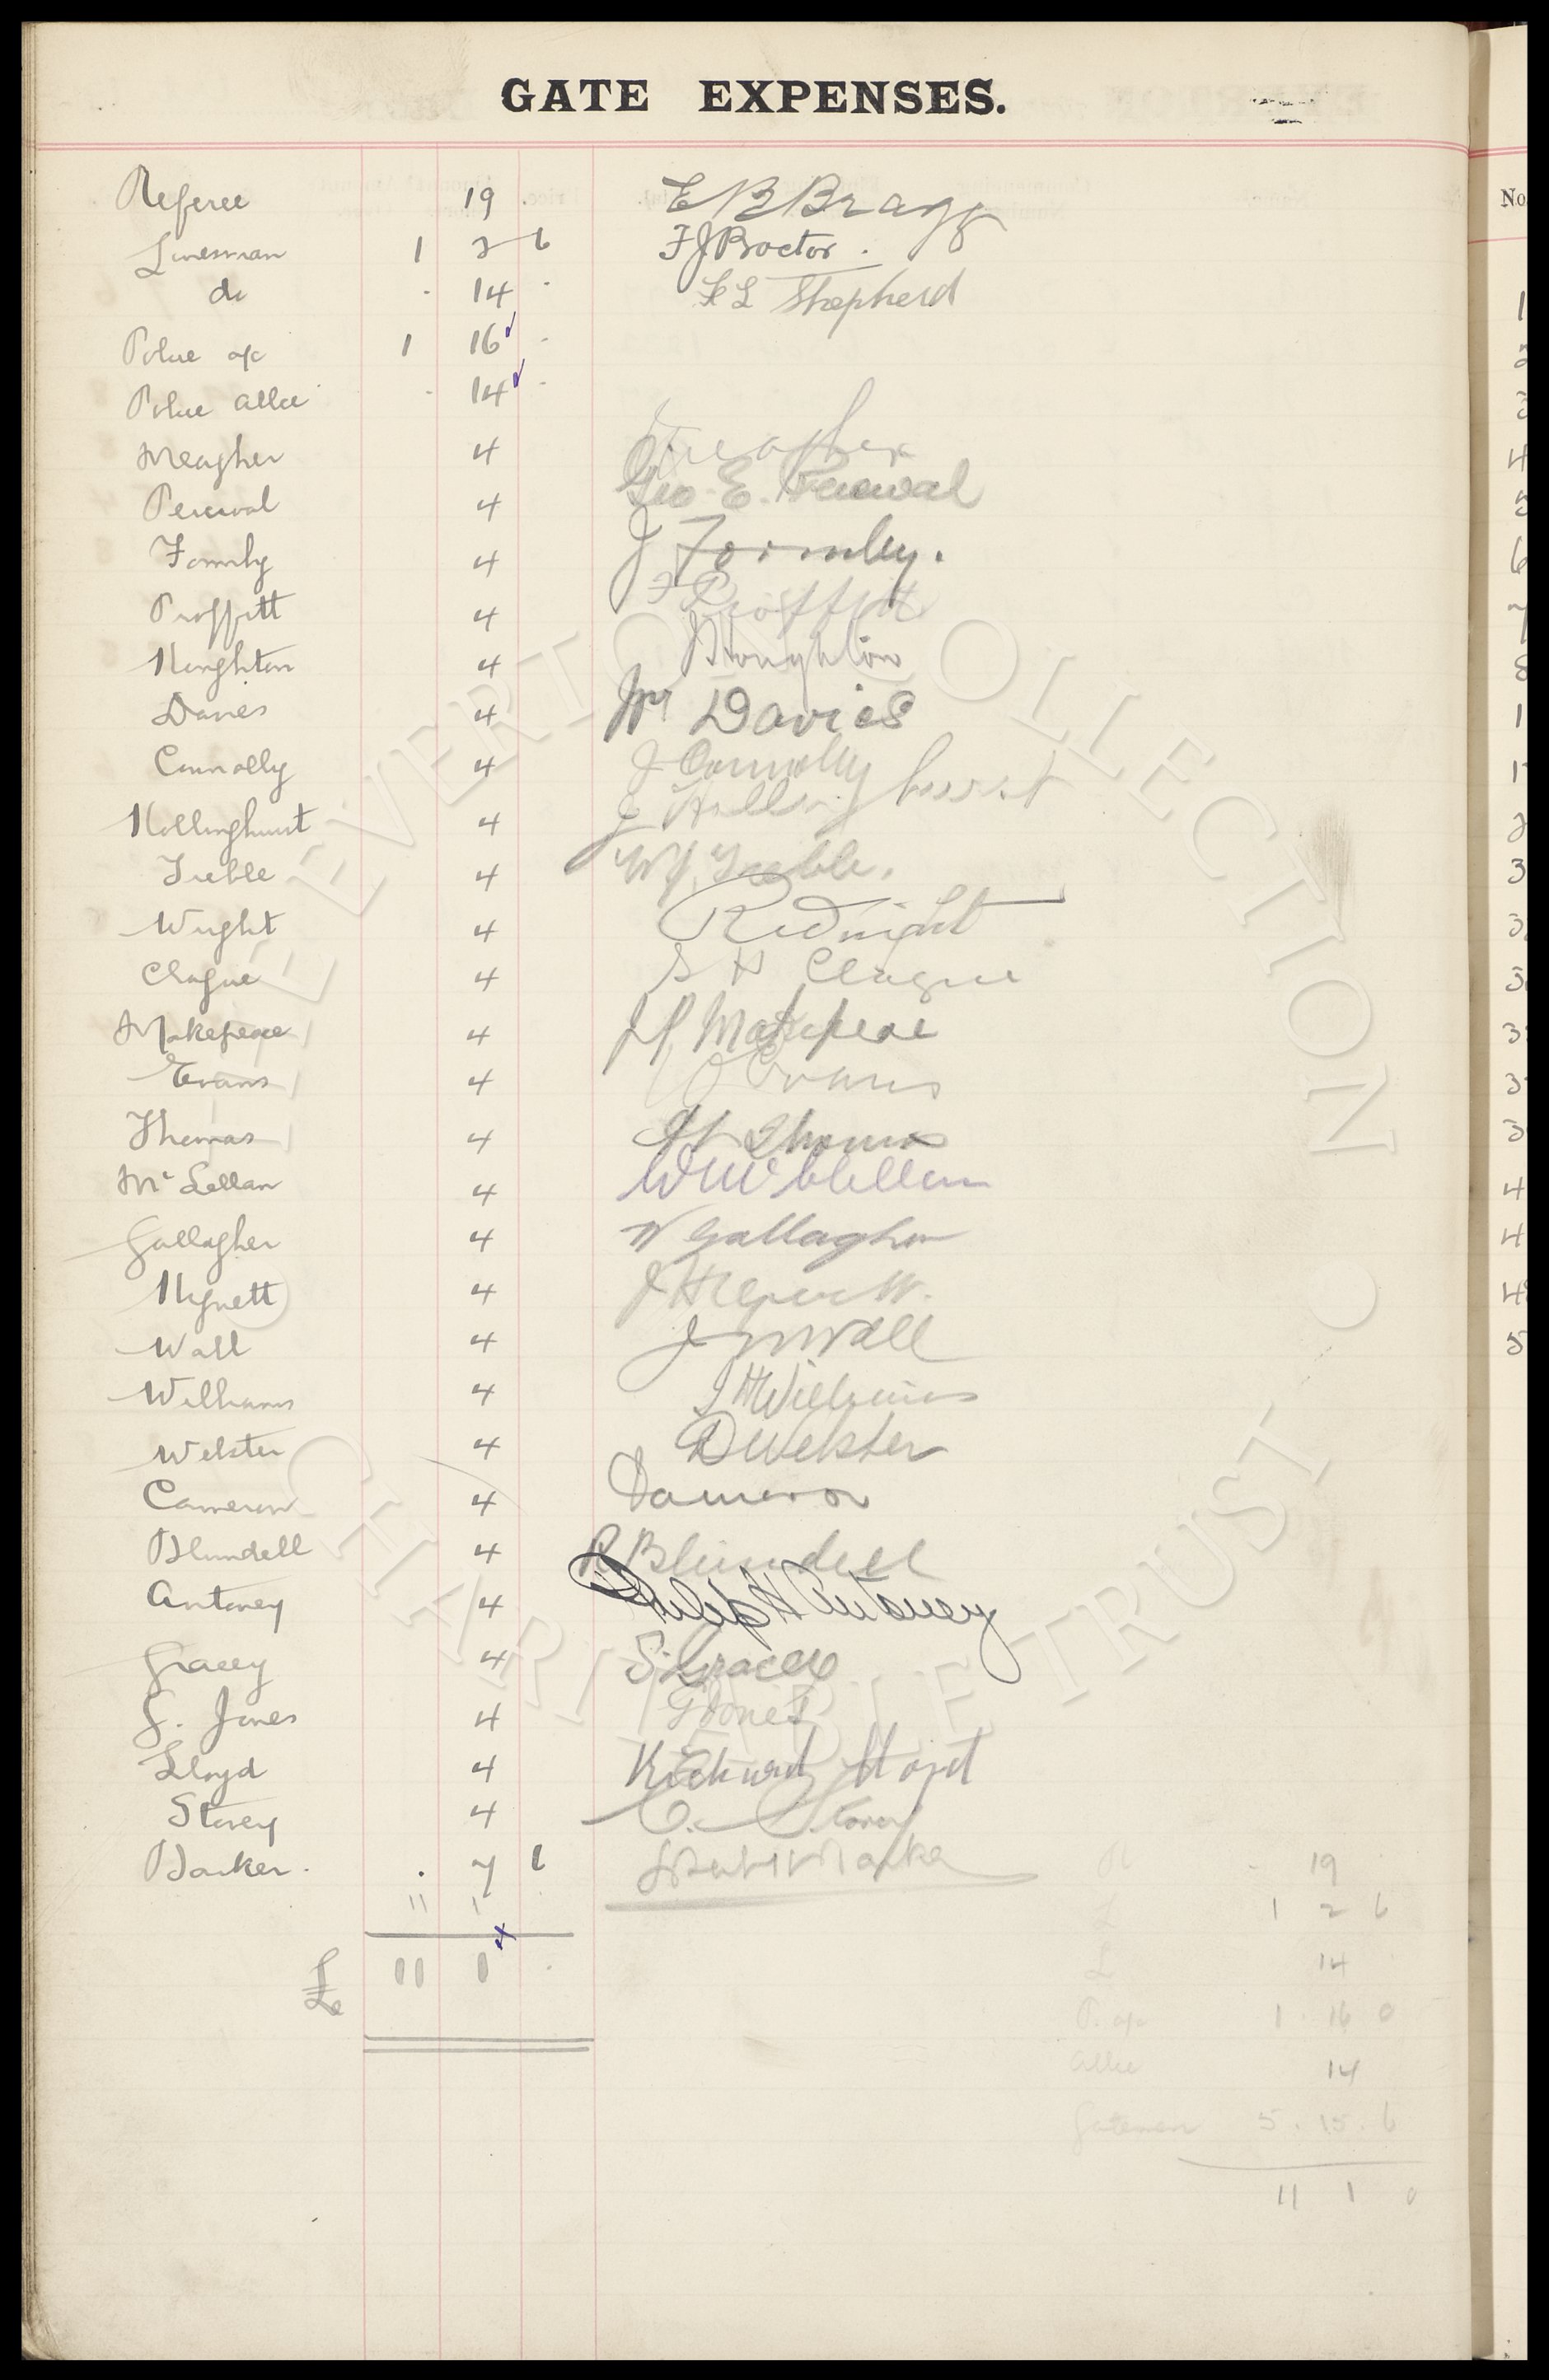 GATE EXPENSES.
Referee 19 E B Bragg
Linesman 1 2 6 F J Proctor.
do . 14 . F L Shepherd
Police a/c 1 16 .
Police allce . 14 .
Meagher 4 Meagher
Percival 4 Geo. E. Percival
Formby 4 J Formby.
Proffitt 4 F Proffitt
Houghton 4 Houghton
Davies 4 Wm Davies
Connolly 4 J Connolly
Hollinghurst 4 J Hollinghurst
Treble 4 W J Treble.
Wright 4 R Wright
Clague 4 S H Clague
Makepeace 4 Makepeace
Evans 4 Evans
Thomas 4 Thomas
McLellan 4 W McClellan
Gallagher 4 W Gallagher
Hignett 4 J Hignett.
Wall 4 J W Wall
Williams 4 J H Williams
Webster 4 D Webster
Cameron 4 Cameron
Blundell 4 R Blundell
Antoney 4 Philip H Antoney
Gracey 4 S. Gracey
G. Jones 4 G Jones
Lloyd 4 Richard Lloyd
Storey 4 C. Storey
Barker . . 7 6 Barker
11 1
£ 11 1 .
R 19
L 1 2 6
L 14
P. a/c 1 . 16 0
allce 14
Gatemen 5 . 15 . 6
11 1 0
No
1
2
3
4
5
6
7
8
1
1
2
3
3
3
3
3
3
4
4
4
5
EVERTON COLLECTION CHARITABLE TRUST